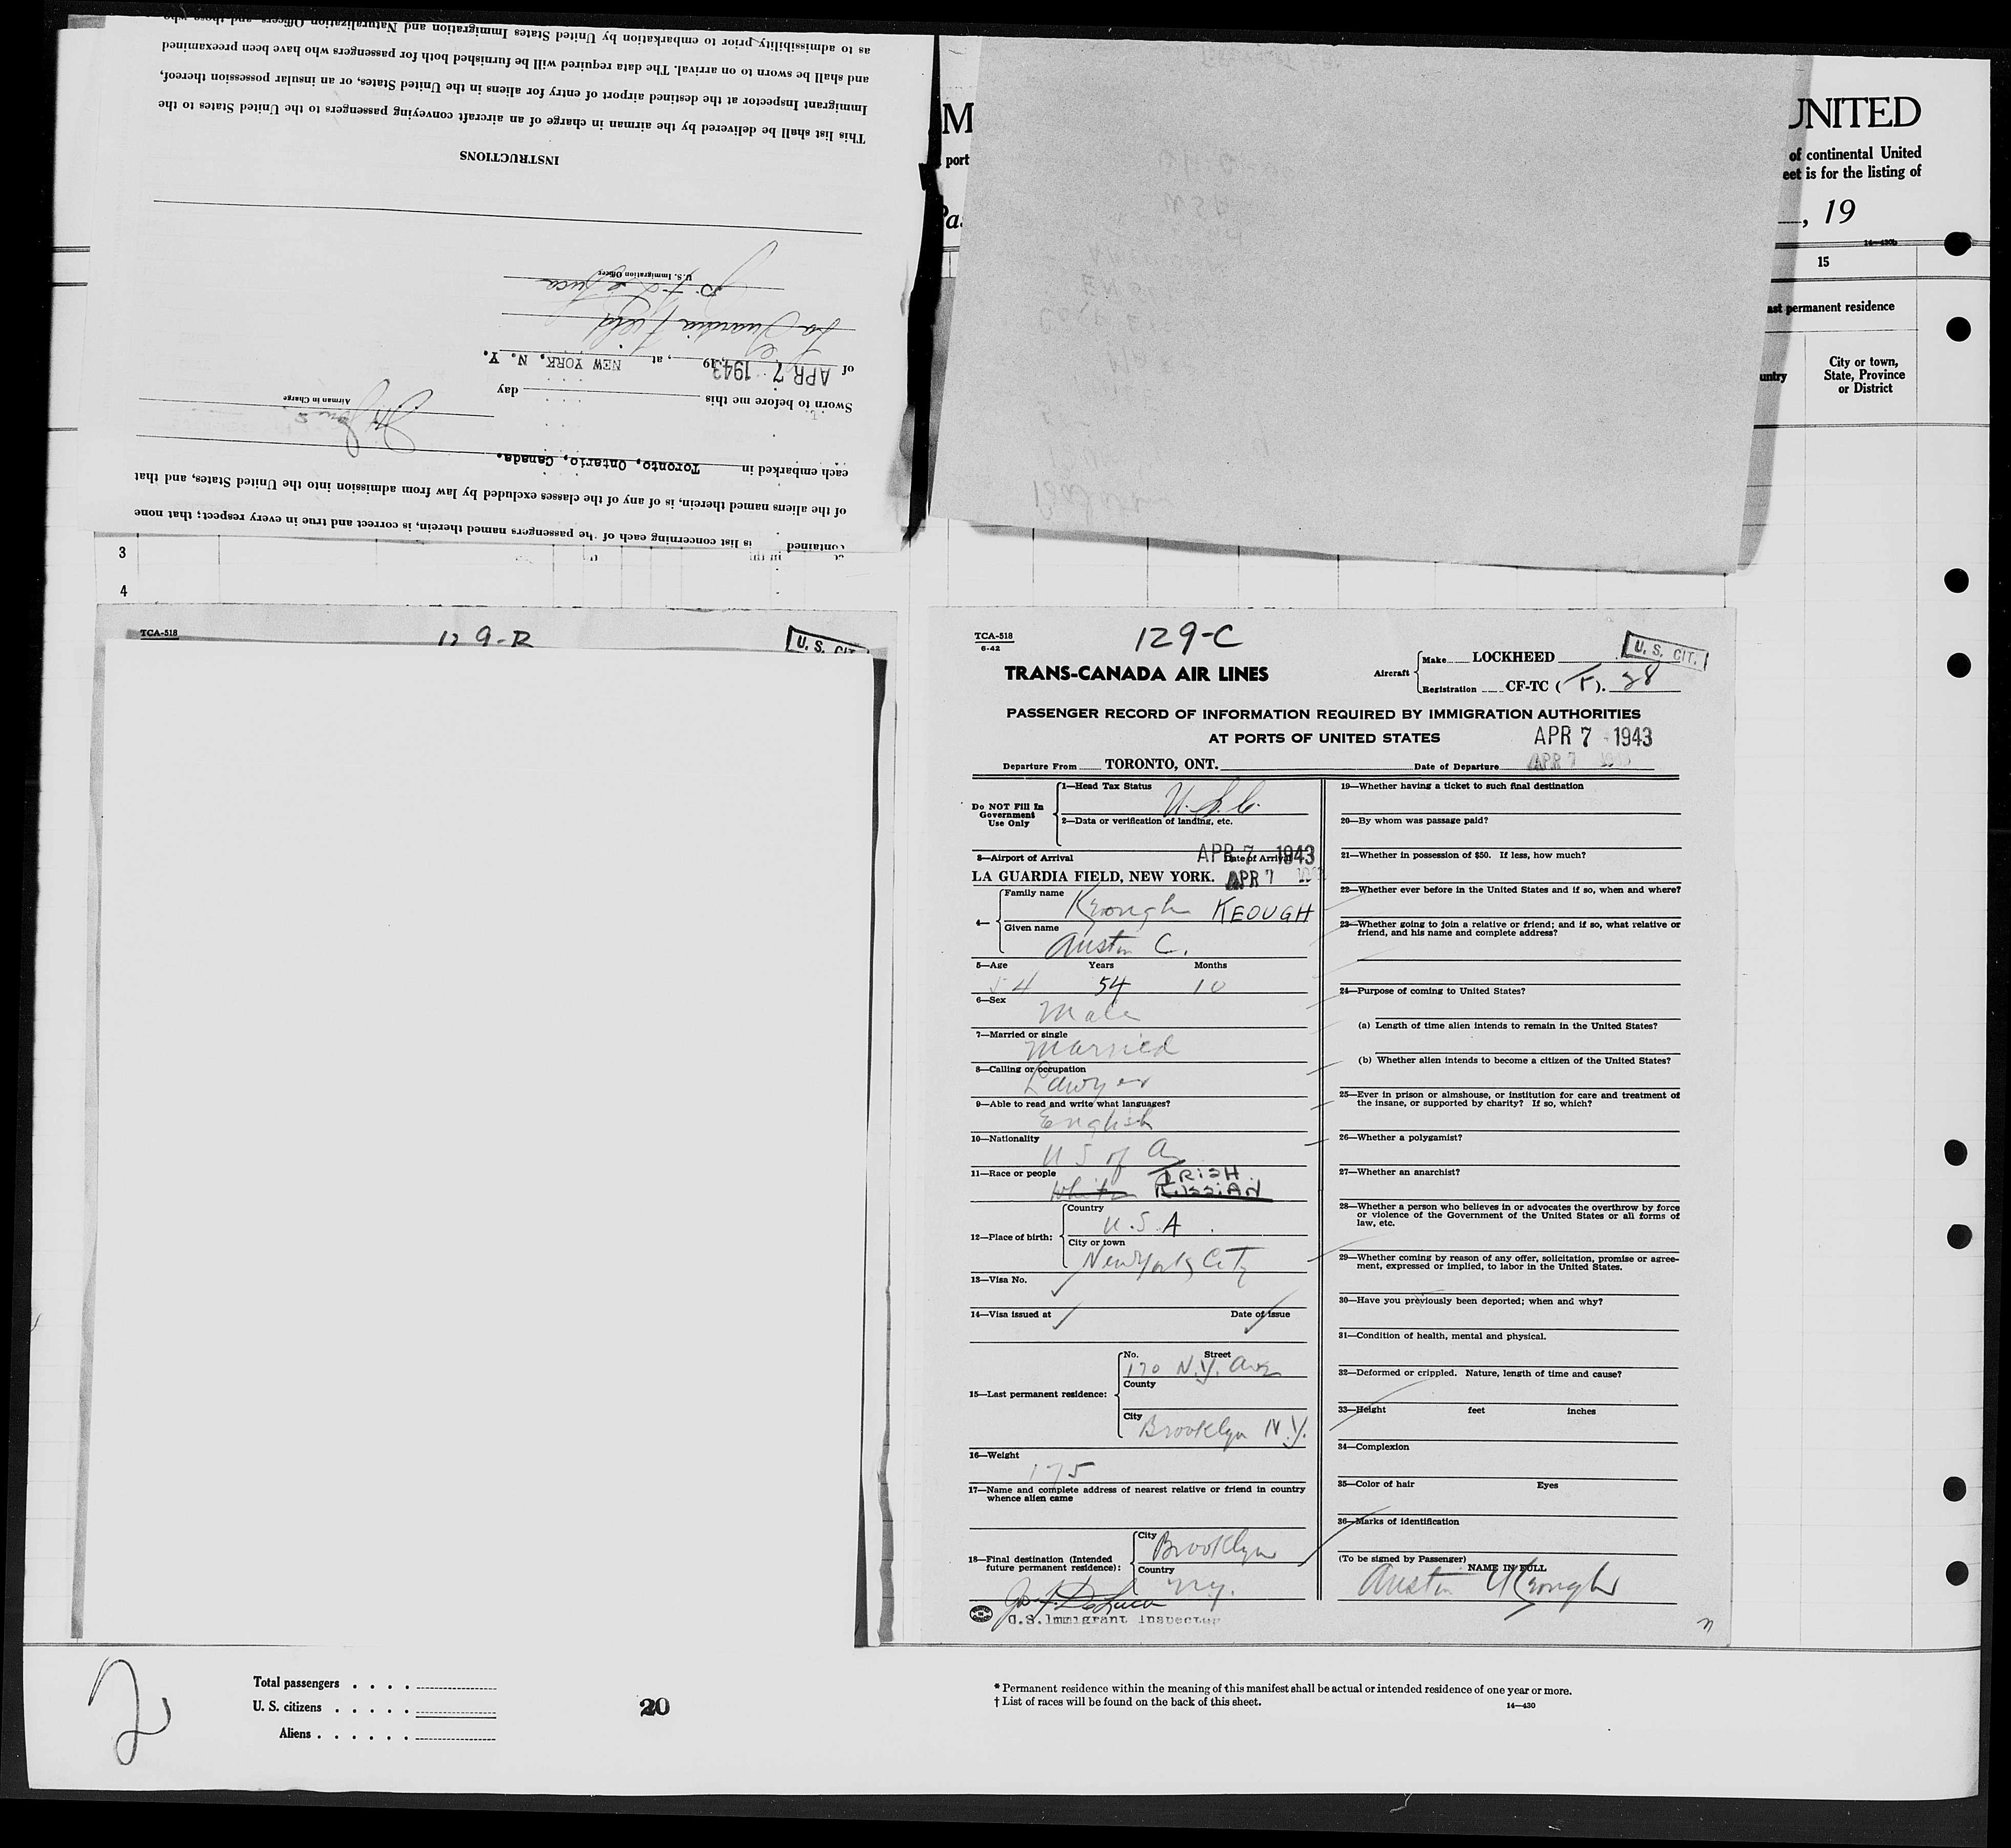 as to admissibility prior to embarkation by United States Immigration and Naturalization Officers and those who
and shall be sworn to on arrival. The data required will be furnished both for passengers who have been preexamined
Immigrant Inspector at the destined airport of entry for aliens in the United States, or an insular possession thereof,
This list shall be delivered by the airman in charge of an aircraft conveying passengers to the United States to the
INSTRUCTIONS
U.S. Immigration Officer
La Guardia Field
of APR 7 1943, 19, at NEW YORK, N. Y.
Sworn to before me this day
Airman in Charge
each embarked in Toronto, Ontario, Canada.
of the aliens named therein, is of any of the classes excluded by law from admission into the United States, and that
contained is list concerning each of the passengers named therein, is correct and true in every respect; that none
3
4
M
port
Pas
UNITED
of continental United
eet is for the listing of
, 19
14—430b
15
ast permanent residence
untry
City or town,
State, Province
or District
TCA-518
129-R
U. S. CIT.
TCA-518
6-42
129-C
U. S. CIT.
TRANS-CANADA AIR LINES
Aircraft
Make LOCKHEED
Registration CF-TC (T). 28
PASSENGER RECORD OF INFORMATION REQUIRED BY IMMIGRATION AUTHORITIES
AT PORTS OF UNITED STATES
APR 7 1943
Departure From TORONTO, ONT. Date of Departure APR 7
Do NOT Fill In
Government
Use Only
1—Head Tax Status U.S.C.
2—Data or verification of landing, etc.
3—Airport of Arrival Date of Arrival APR 7 1943
LA GUARDIA FIELD, NEW YORK. APR 7
4—
Family name Keough KEOUGH
Given name Austin C.
5—Age Years Months
54 54 10
6—Sex Male
7—Married or single Married
8—Calling or occupation Lawyer
9—Able to read and write what languages? English
10—Nationality U S of A
11—Race or people White IRISH
RUSSIAN
12—Place of birth:
Country U.S.A.
City or town New York City
13—Visa No.
14—Visa issued at Date of issue
15—Last permanent residence:
No. Street 170 N.Y. Ave
County
City Brooklyn N.Y.
16—Weight 175
17—Name and complete address of nearest relative or friend in country
whence alien came
18—Final destination (Intended
future permanent residence):
City Brooklyn
Country N.Y.
Jos. F. DeLuca
U.S. Immigrant Inspector
19—Whether having a ticket to such final destination
20—By whom was passage paid?
21—Whether in possession of $50. If less, how much?
22—Whether ever before in the United States and if so, when and where?
23—Whether going to join a relative or friend; and if so, what relative or
friend, and his name and complete address?
24—Purpose of coming to United States?
(a) Length of time alien intends to remain in the United States?
(b) Whether alien intends to become a citizen of the United States?
25—Ever in prison or almshouse, or institution for care and treatment of
the insane, or supported by charity? If so, which?
26—Whether a polygamist?
27—Whether an anarchist?
28—Whether a person who believes in or advocates the overthrow by force
or violence of the Government of the United States or all forms of
law, etc.
29—Whether coming by reason of any offer, solicitation, promise or agree-
ment, expressed or implied, to labor in the United States.
30—Have you previously been deported; when and why?
31—Condition of health, mental and physical.
32—Deformed or crippled. Nature, length of time and cause?
33—Height feet inches
34—Complexion
35—Color of hair Eyes
36—Marks of identification
(To be signed by Passenger) NAME IN FULL
Austin C Keough
2
Total passengers
U. S. citizens
Aliens
20
* Permanent residence within the meaning of this manifest shall be actual or intended residence of one year or more.
† List of races will be found on the back of this sheet.
14—430